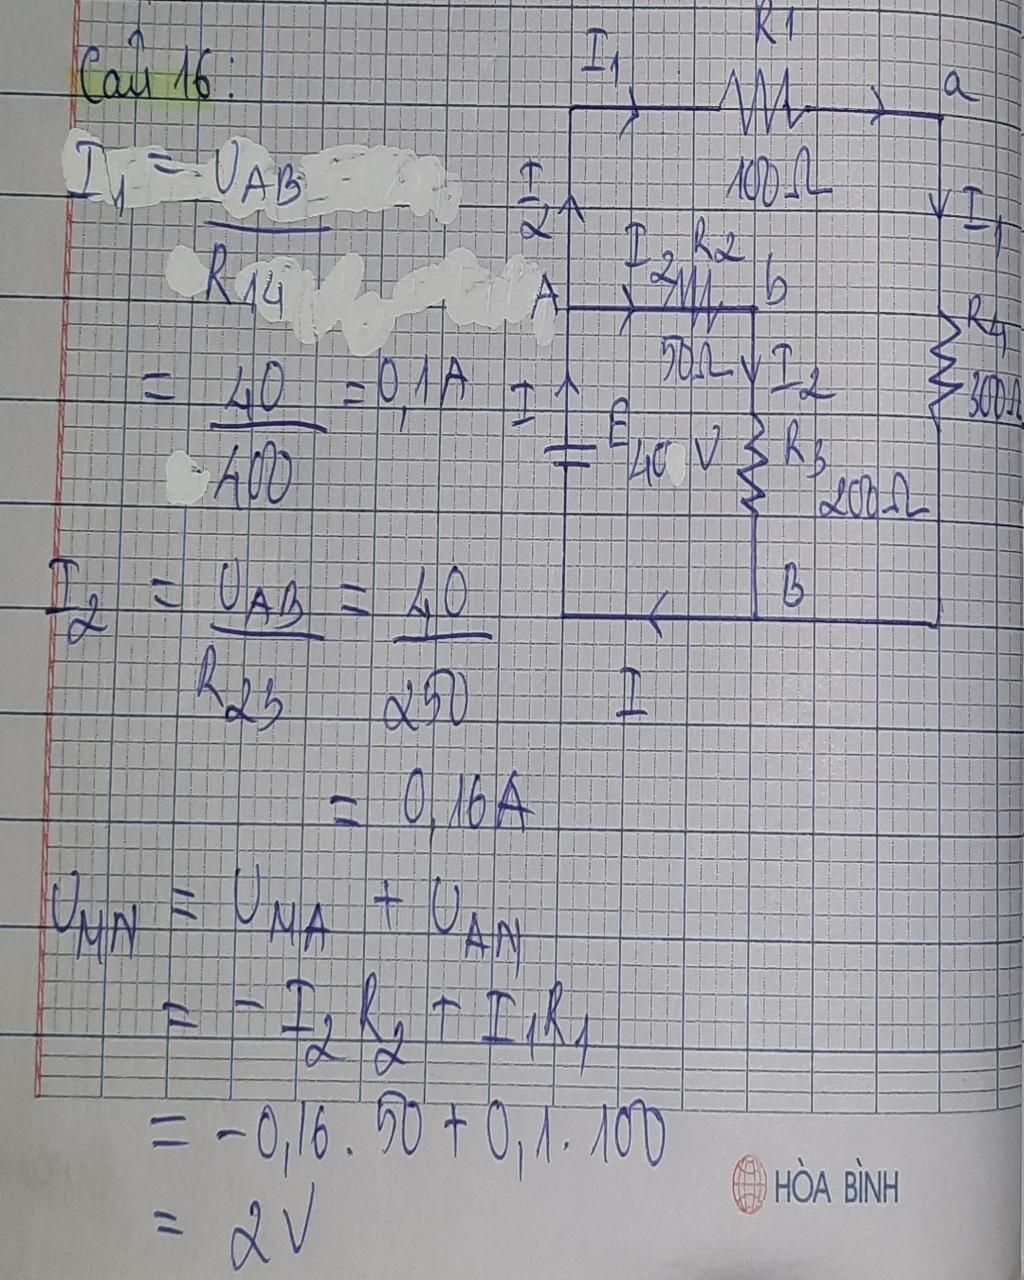 Câu 16:
I₁ = U_AB
R₁₄
= 40 = 0,1A
400
I₂ = U_AB = 40
R₂₃ 250
= 0,16A
U_MN = U_MA + U_AN
= - I₂ R₂ + I₁R₁
= -0,16 . 50 + 0,1 . 100
= 2V
R1
I₁
a
100Ω
I₂
I₁
I₂ R2
A
b
50Ω
I₂
R4
300Ω
I
E
40 V
R3
200Ω
B
I
HÒA BÌNH